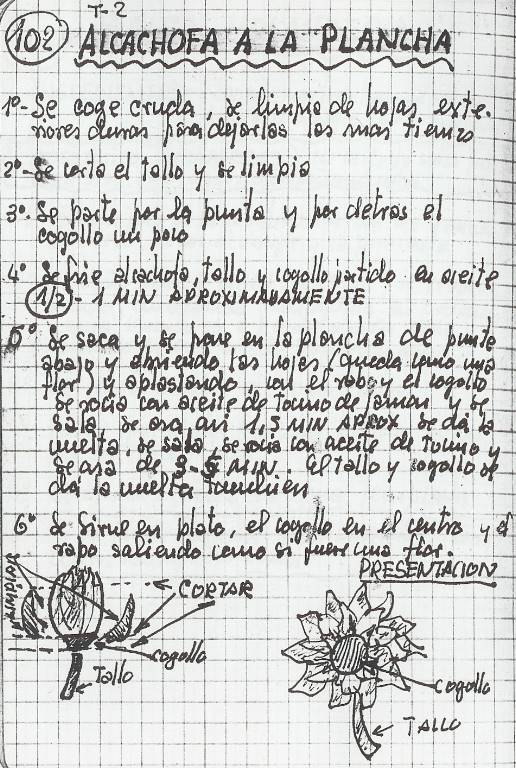 T-2
102 ALCACHOFA A LA PLANCHA
1º- Se coge cruda, se limpia de hojas exte-
riores duras para dejarlas las mas tiernas
2º- Se corta el tallo y se limpia
3º- Se parte por la punta y por detras el
cogollo un poco
4º Se frie alcachofa, tallo y cogollo partido en aceite
1/2 - 1 MIN APROXIMADAMENTE
5º Se saca y se pone en la plancha de punta
abajo y abriendo las hojas (queda como una
flor) y aplastando, con el rabo y el cogollo
Se rocia con aceite de tocino de jamon y se
sala, se asa asi 1,5 MIN APROX se da la
vuelta, se sala, se rocia con aceite de tocino y
se asa de MIN. El tallo y cogollo se
da la vuelta tambien
6º Se sirve en plato, el cogollo en el centro y el
rabo saliendo como si fuere una flor.
PRESENTACION
CORTAR
cogollo
Tallo
cogollo
TALLO